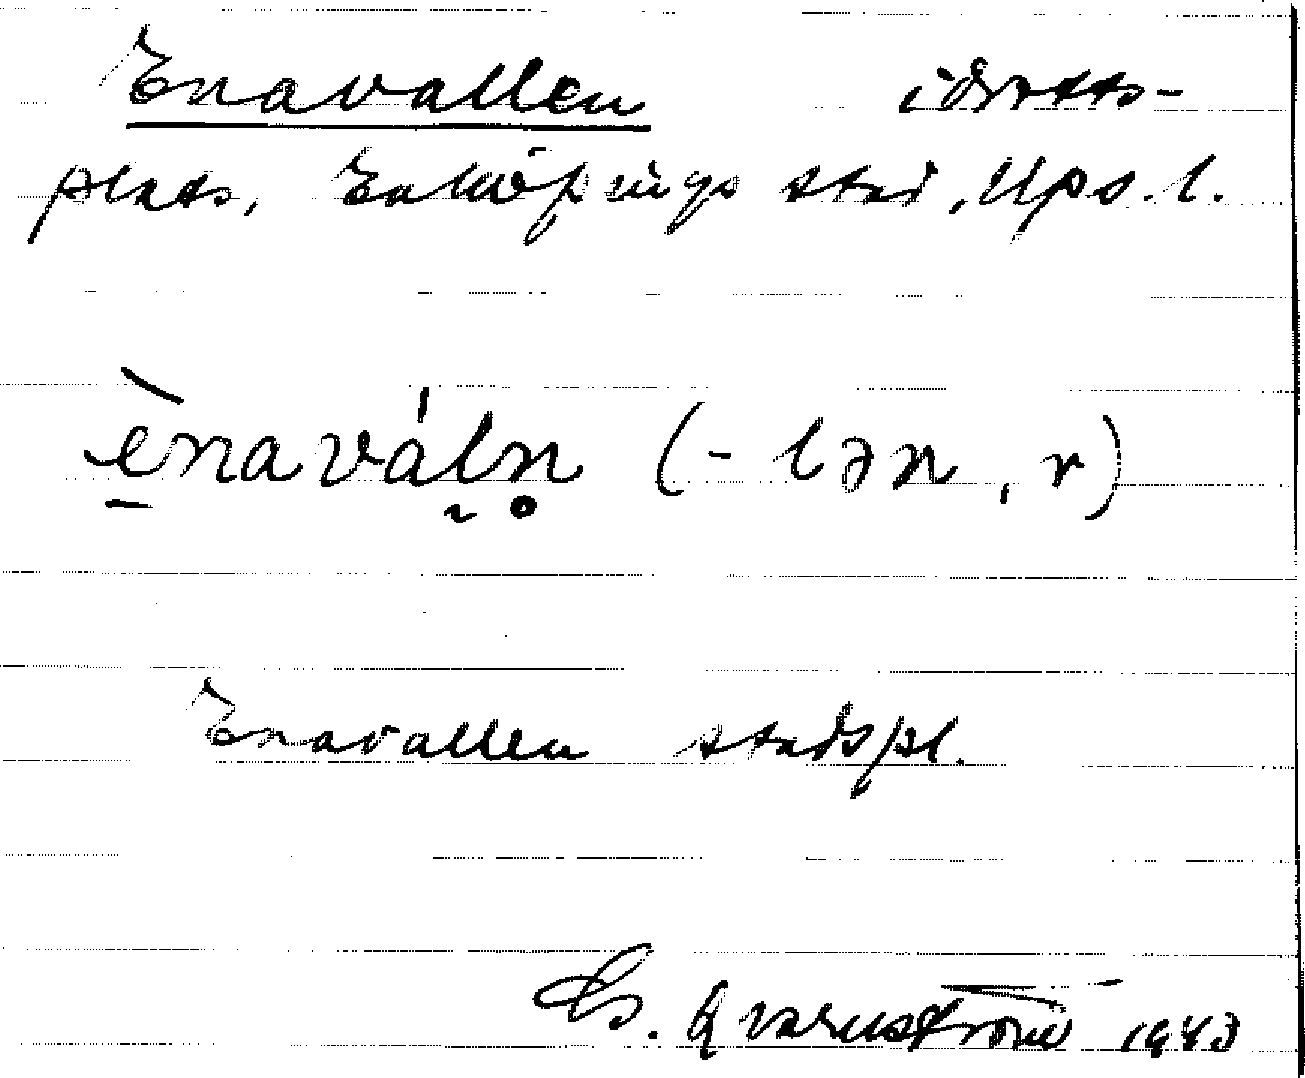 Enavallen idrotts-
plats, Enköpings stad, Ups. l.
ènaváln (-lən, r)
Enavallen stadspl.
Qvarnström 1943